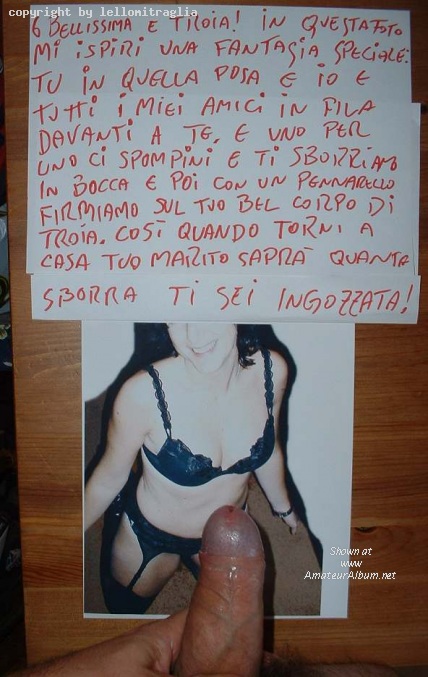 copyright by lellomitraglia
6 BELLISSIMA E TROIA! IN QUESTA FOTO
MI ISPIRI UNA FANTASIA SPECIALE:
TU IN QUELLA POSA E IO E
TUTTI I MIEI AMICI IN FILA
DAVANTI A TE. E UNO PER
UNO CI SPOMPINI E TI SBORRIAMO
IN BOCCA E POI CON UN PENNARELLO
FIRMIAMO SUL TUO BEL CORPO DI
TROIA. COSÌ QUANDO TORNI A
CASA TUO MARITO SAPRÀ QUANTA
SBORRA TI SEI INGOZZATA!
Shown at
www
AmateurAlbum.net